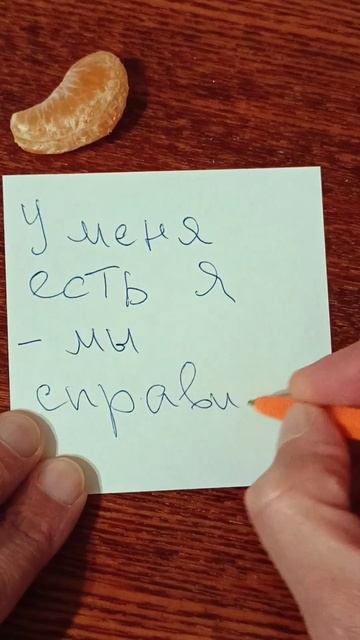 У меня
есть я
- мы
справи